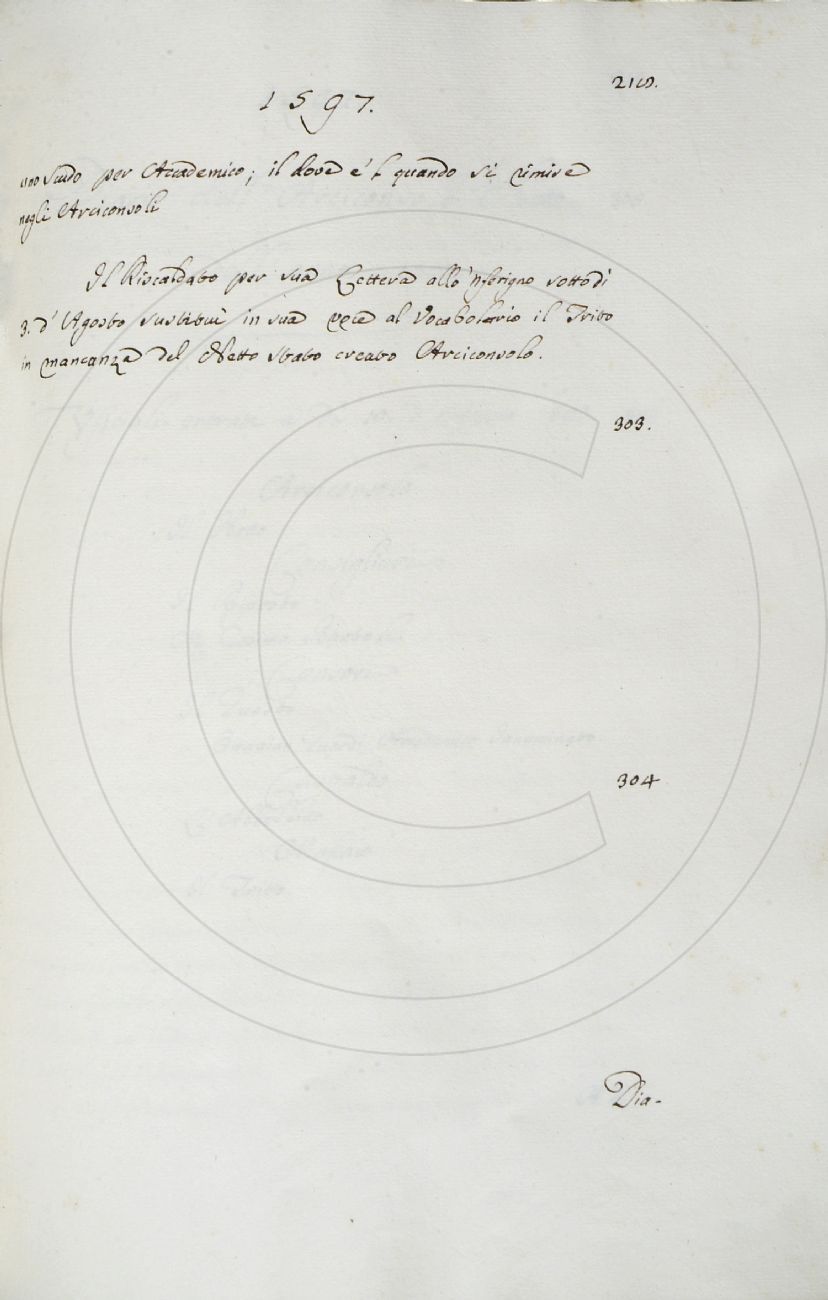 219.
1597.
uno scudo per Accademico; il dove e'l quando si rimise
negli Arciconsoli
Il Riscaldato per sua Lettera allo 'nferigno sotto dì
3. d'Agosto sustituì in sua vece al Vocabolario il Trito
in mancanza del Netto stato creato Arciconsolo.
303.
304
Dia-